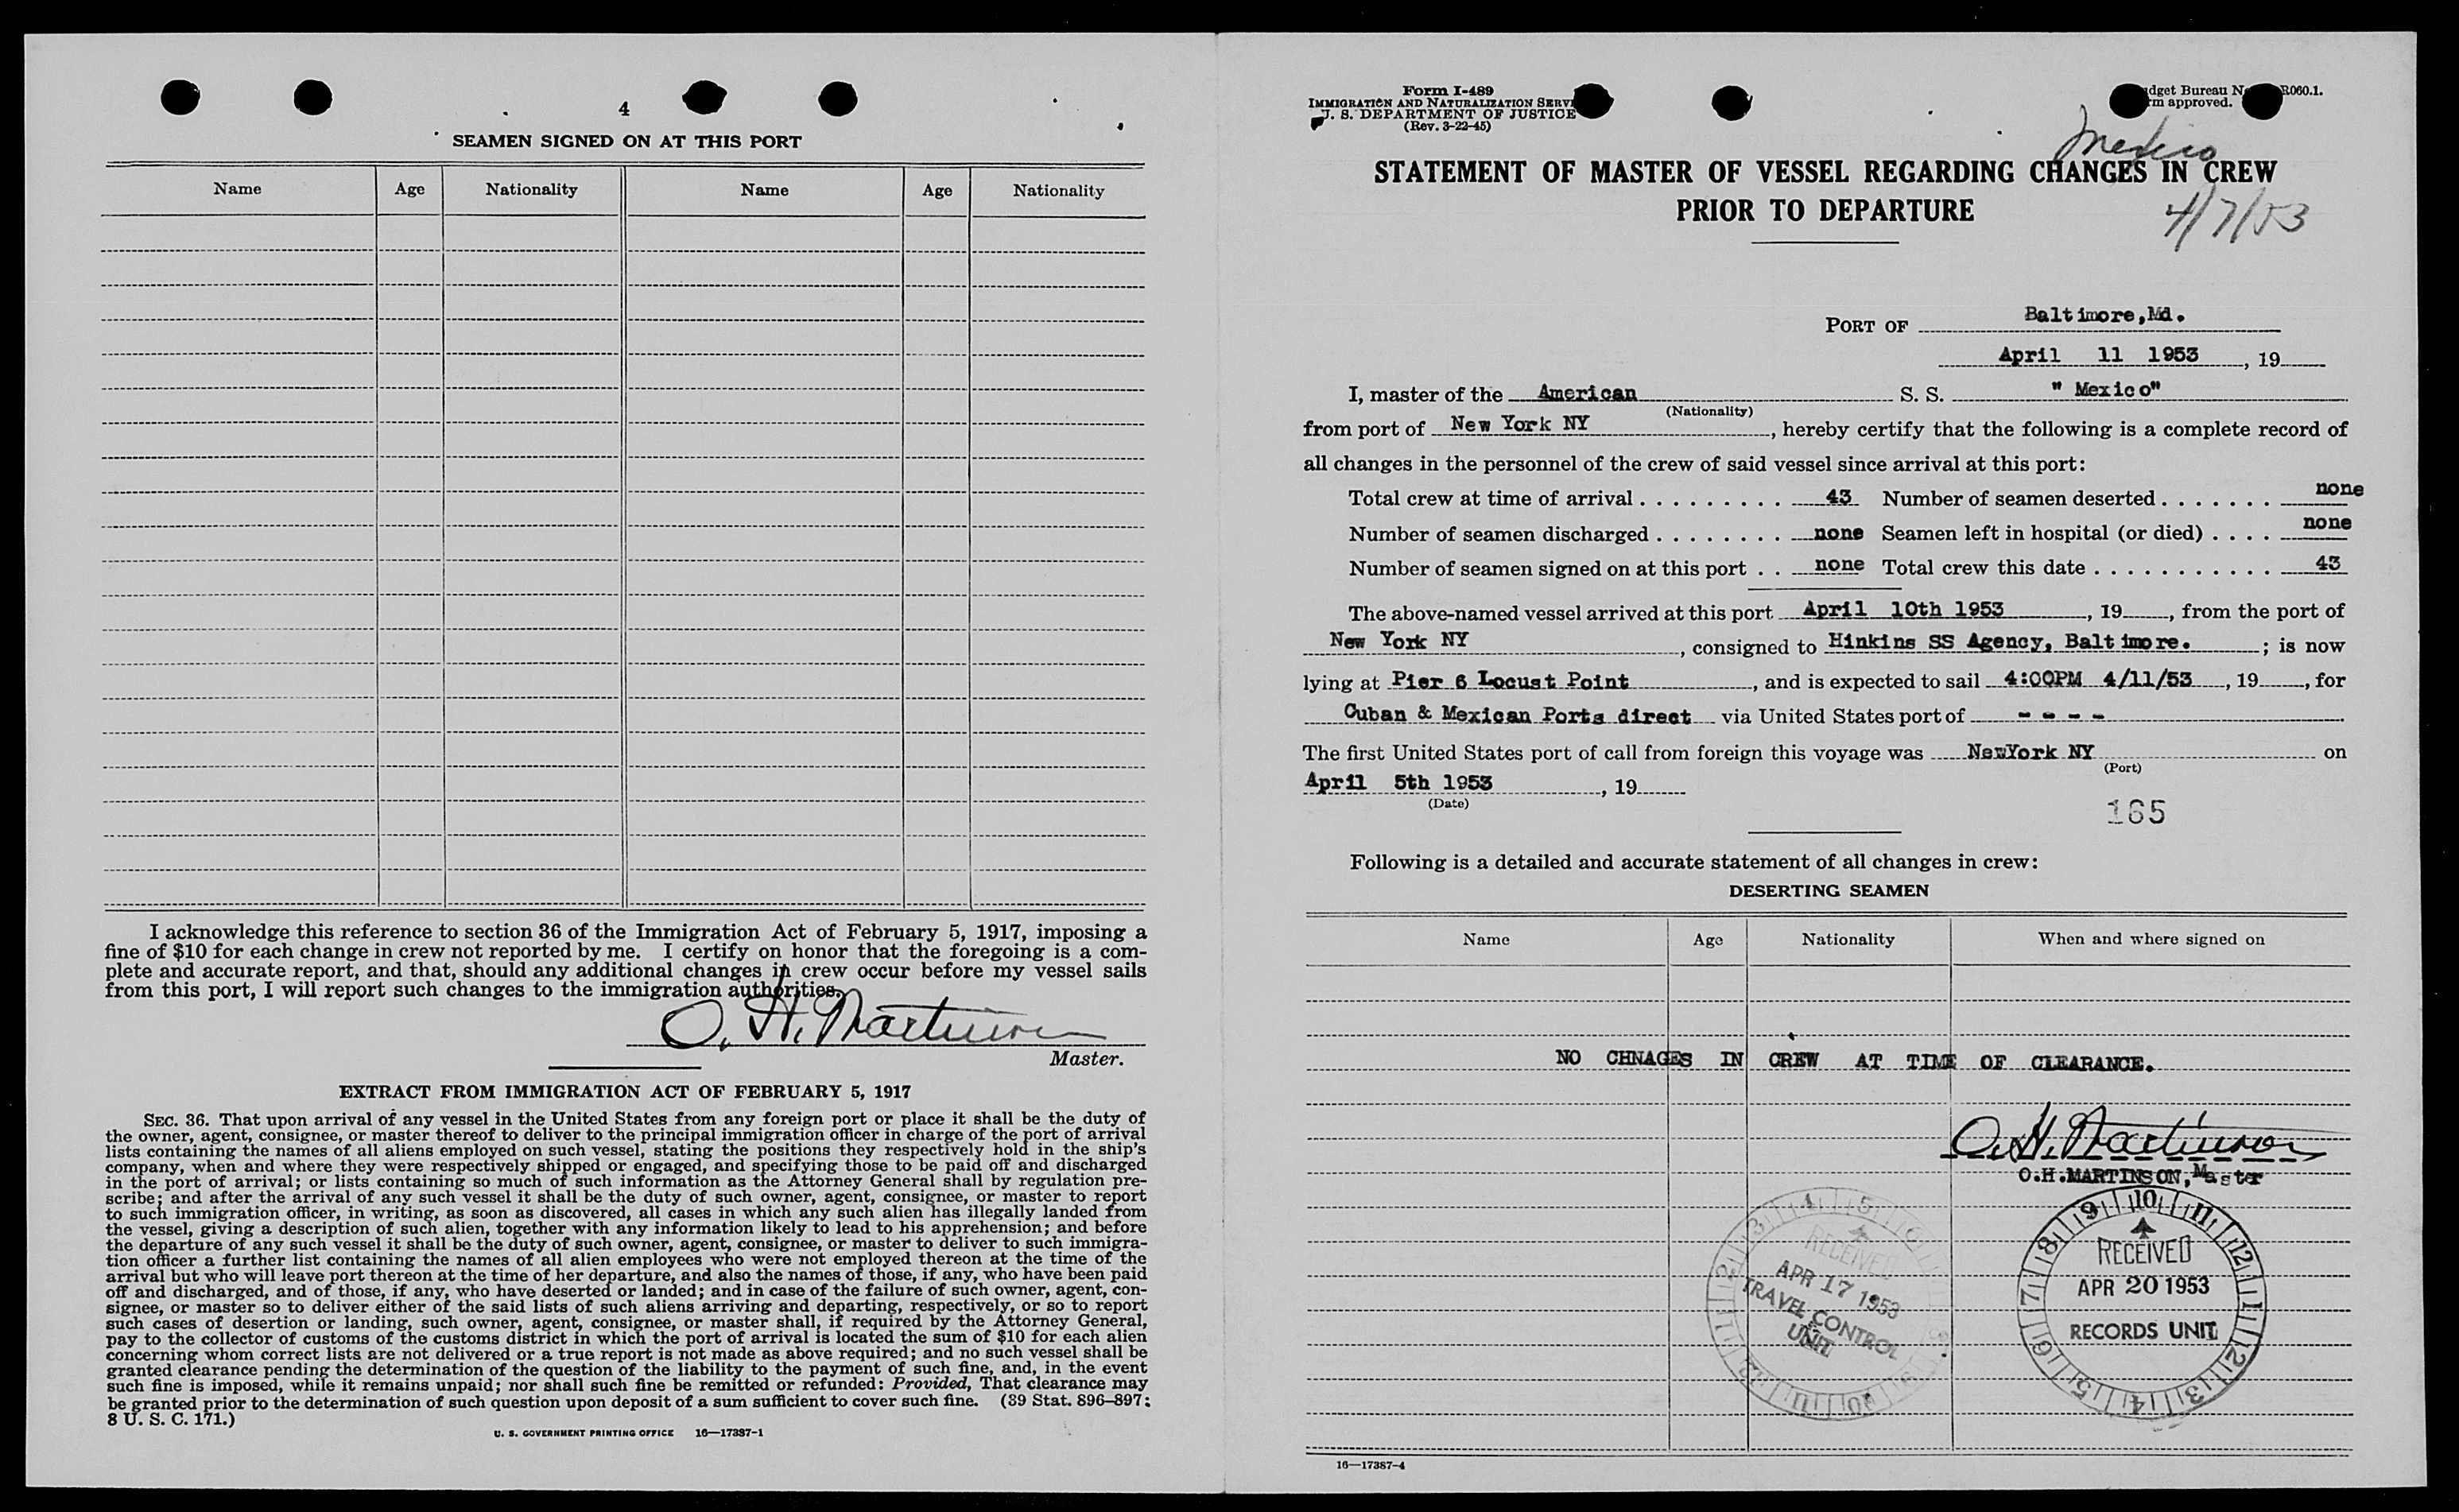 4
SEAMEN SIGNED ON AT THIS PORT
Name Age Nationality Name Age Nationality
I acknowledge this reference to section 36 of the Immigration Act of February 5, 1917, imposing a
fine of $10 for each change in crew not reported by me. I certify on honor that the foregoing is a com-
plete and accurate report, and that, should any additional changes in crew occur before my vessel sails
from this port, I will report such changes to the immigration authorities.
O. H. Martinson
Master.
EXTRACT FROM IMMIGRATION ACT OF FEBRUARY 5, 1917
SEC. 36. That upon arrival of any vessel in the United States from any foreign port or place it shall be the duty of
the owner, agent, consignee, or master thereof to deliver to the principal immigration officer in charge of the port of arrival
lists containing the names of all aliens employed on such vessel, stating the positions they respectively hold in the ship's
company, when and where they were respectively shipped or engaged, and specifying those to be paid off and discharged
in the port of arrival; or lists containing so much of such information as the Attorney General shall by regulation pre-
scribe; and after the arrival of any such vessel it shall be the duty of such owner, agent, consignee, or master to report
to such immigration officer, in writing, as soon as discovered, all cases in which any such alien has illegally landed from
the vessel, giving a description of such alien, together with any information likely to lead to his apprehension; and before
the departure of any such vessel it shall be the duty of such owner, agent, consignee, or master to deliver to such immigra-
tion officer a further list containing the names of all alien employees who were not employed thereon at the time of the
arrival but who will leave port thereon at the time of her departure, and also the names of those, if any, who have been paid
off and discharged, and of those, if any, who have deserted or landed; and in case of the failure of such owner, agent, con-
signee, or master so to deliver either of the said lists of such aliens arriving and departing, respectively, or so to report
such cases of desertion or landing, such owner, agent, consignee, or master shall, if required by the Attorney General,
pay to the collector of customs of the customs district in which the port of arrival is located the sum of $10 for each alien
concerning whom correct lists are not delivered or a true report is not made as above required; and no such vessel shall be
granted clearance pending the determination of the question of the liability to the payment of such fine, and, in the event
such fine is imposed, while it remains unpaid; nor shall such fine be remitted or refunded: Provided, That clearance may
be granted prior to the determination of such question upon deposit of a sum sufficient to cover such fine. (39 Stat. 896–897;
8 U. S. C. 171.)
U. S. GOVERNMENT PRINTING OFFICE 16—17387-1
Form I-489
IMMIGRATION AND NATURALIZATION SERVI
U. S. DEPARTMENT OF JUSTICE
(Rev. 3-22-45)
dget Bureau N R060.1.
rm approved.
Mexico
STATEMENT OF MASTER OF VESSEL REGARDING CHANGES IN CREW
PRIOR TO DEPARTURE
4/7/53
PORT OF Baltimore,Md.
April 11 1953, 19
I, master of the American S. S. " Mexico"
(Nationality)
from port of New York NY, hereby certify that the following is a complete record of
all changes in the personnel of the crew of said vessel since arrival at this port:
Total crew at time of arrival 43 Number of seamen deserted none
Number of seamen discharged none Seamen left in hospital (or died) none
Number of seamen signed on at this port none Total crew this date 43
The above-named vessel arrived at this port April 10th 1953, 19, from the port of
New York NY, consigned to Hinkins SS Agency, Baltimore.; is now
lying at Pier 6 Locust Point, and is expected to sail 4:00PM 4/11/53, 19, for
Cuban & Mexican Ports direct via United States port of - - - -
The first United States port of call from foreign this voyage was NewYork NY on
(Port)
April 5th 1953, 19
(Date)
165
Following is a detailed and accurate statement of all changes in crew:
DESERTING SEAMEN
Name Age Nationality When and where signed on
NO CHNAGES IN CREW AT TIME OF CLEARANCE.
O. H. Martinson
O.H.MARTINSON, Master
RECEIVED
APR 17 1953
TRAVEL CONTROL
UNIT
9 10 11 12 1 2 3 4 5 6 7 8
RECEIVED
APR 20 1953
RECORDS UNIT
16—17387-4